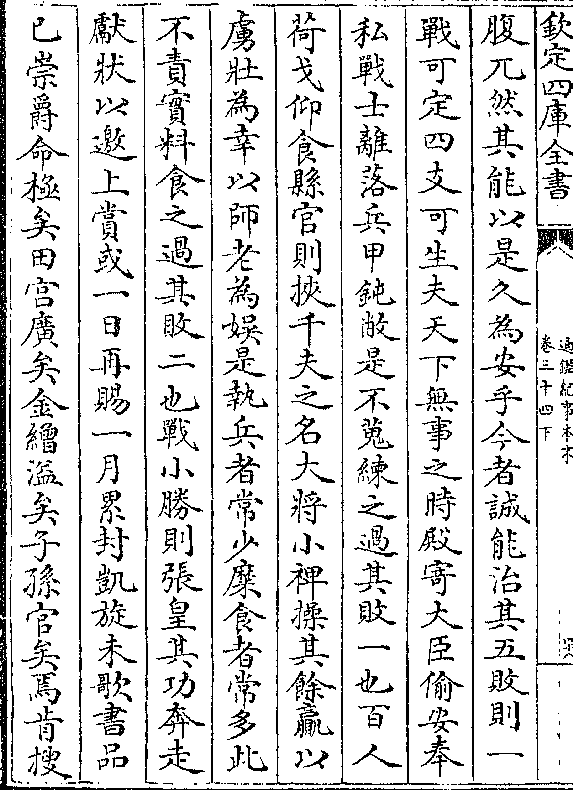 欽定四庫全書
通鑑紀事本末
卷三十四下
腹兀然其能以是久為安乎今者誠能治其五敗則一
戰可定四支可生夫天下無事之時殿寄大臣偷安奉
私戰士離落兵甲鈍敝是不蒐練之過其敗一也百人
荷戈仰食縣官則挾千夫之名大將小裨操其餘贏以
虜壯為幸以師老為娱是執兵者常少糜食者常多此
不責實料食之過其敗二也戰小勝則張皇其功奔走
獻狀以邀上賞或一日再賜一月累封凱旋未歌書品
已崇爵命極矣田宫廣矣金繒溢矣子孫官矣焉肯搜